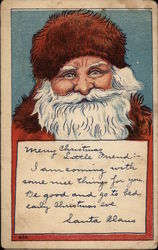 Merry Christmas
Little Friend:-
I am coming with
some nice things for you.
Be good and go to bed
early Christmas eve
Santa Claus